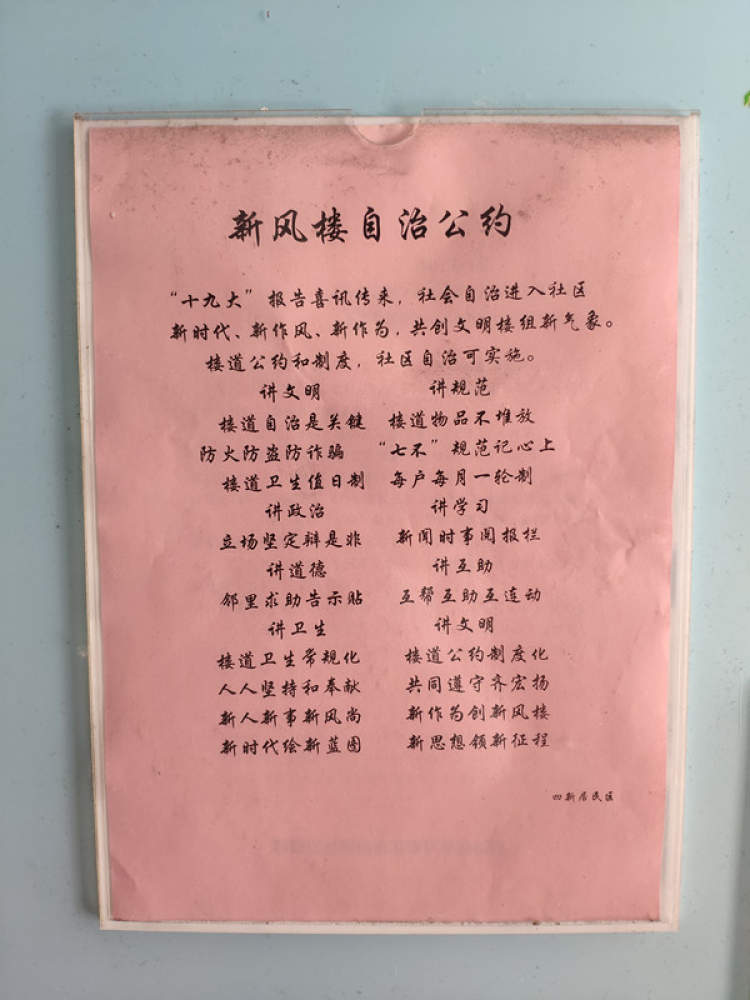 新风楼自治公约
“十九大”报告喜讯传来，社会自治进入社区
新时代、新作风、新作为，共创文明楼组新气象。
楼道公约和制度，社区自治可实施。
讲文明 讲规范
楼道自治是关键 楼道物品不堆放
防火防盗防诈骗 “七不”规范记心上
楼道卫生值日制 每户每月一轮制
讲政治 讲学习
立场坚定辩是非 新闻时事阅报栏
讲道德 讲互助
邻里求助告示贴 互帮互助互连动
讲卫生 讲文明
楼道卫生常规化 楼道公约制度化
人人坚持和奉献 共同遵守齐宏扬
新人新事新风尚 新作为创新风楼
新时代绘新蓝图 新思想领新征程
四新居民区